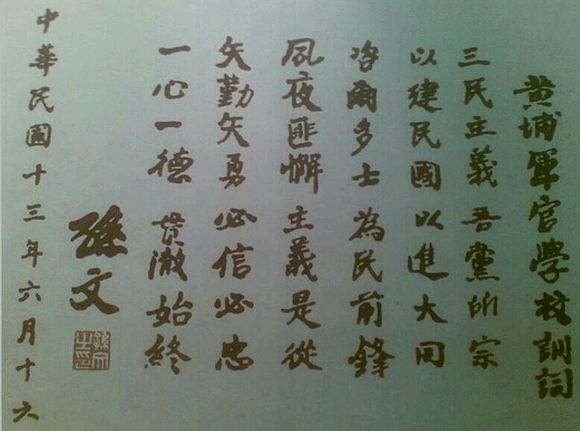 黃埔軍官學校訓詞
三民主義 吾黨所宗
以建民國 以進大同
咨爾多士 為民前鋒
夙夜匪懈 主義是從
矢勤矢勇 必信必忠
一心一德 貫澈始終
孫文
孫文之印
中華民國十三年六月十六